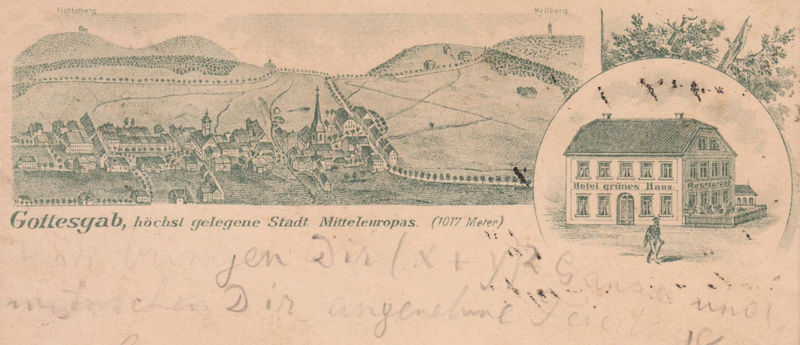 Fichtelberg
Keilberg
Hotel grünes Haus.
Restaur
Gottesgab, höchst gelegene Stadt Mitteleuropas. (1017 Meter)
bringen Dir (x + y)2 Gänse und
wünschen Dir angenehme